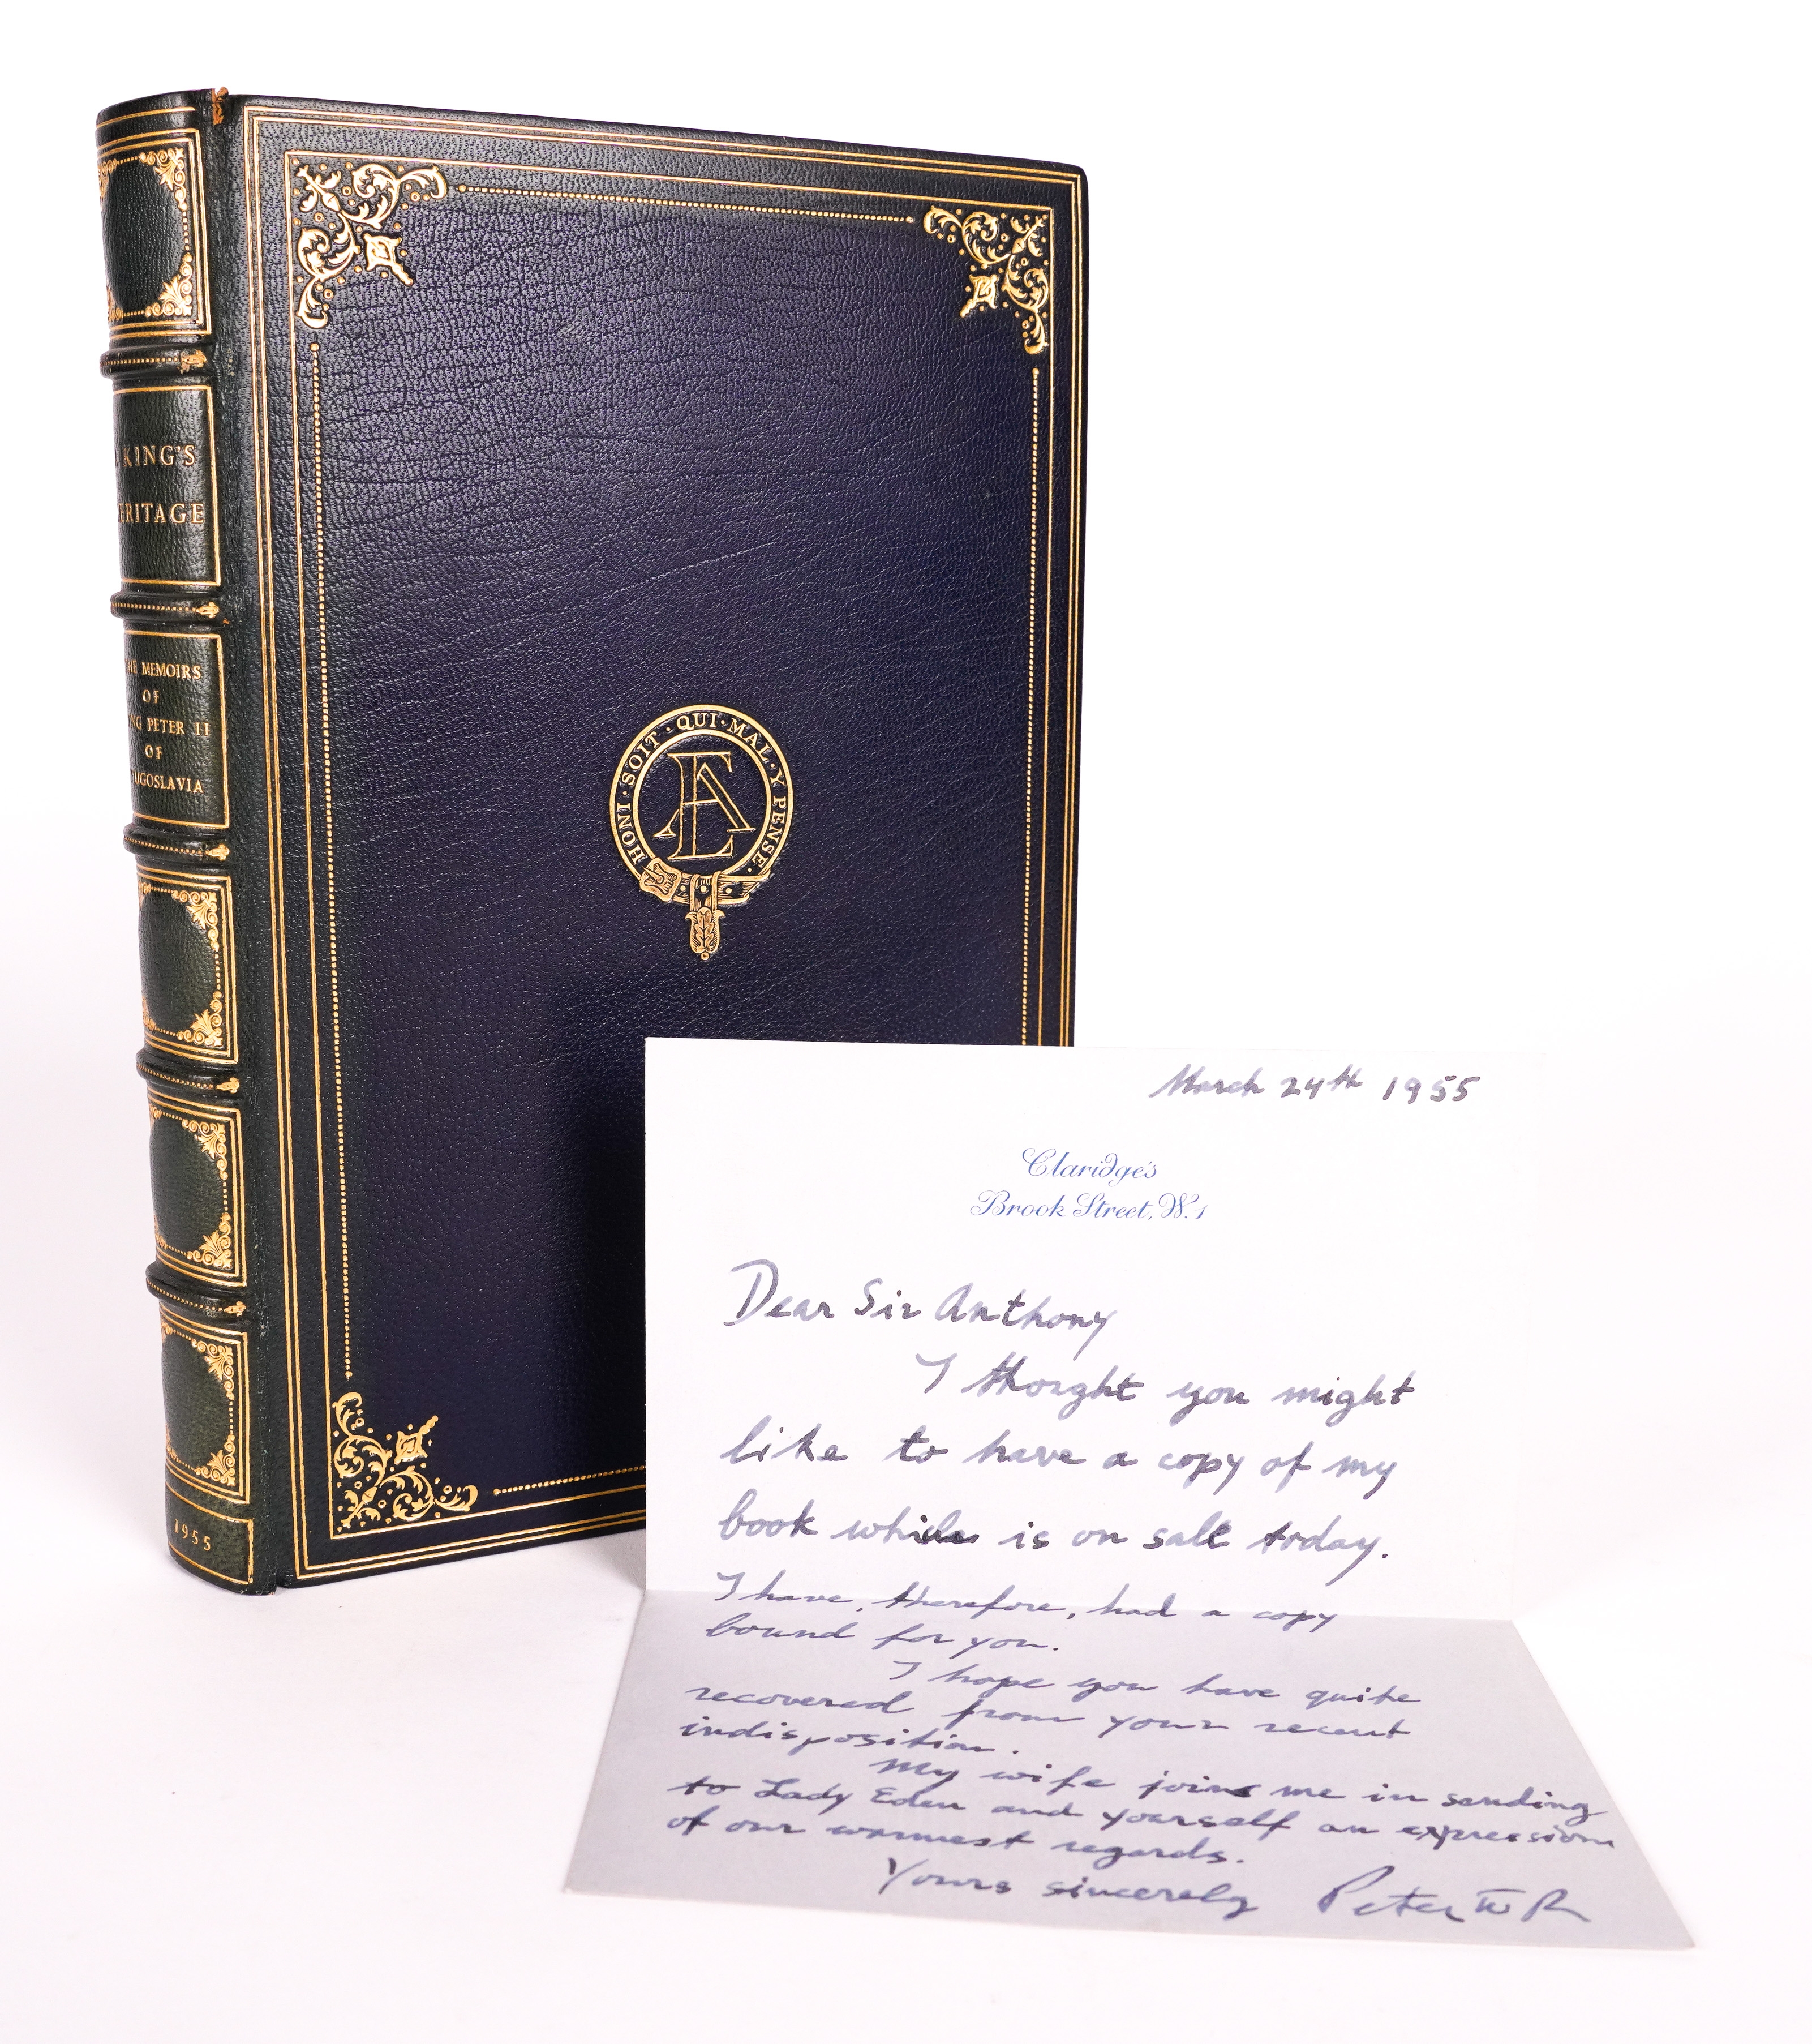 KING'S
ERITAGE
HE MEMOIRS
OF
NG PETER II
OF
UGOSLAVIA
1955
HONI · SOIT · QUI · MAL · Y · PENSE ·
AE
March 24th 1955
Claridge's
Brook Street, W.1
Dear Sir Anthony
I thought you might
like to have a copy of my
book which is on sale today.
I have, therefore, had a copy
bound for you.
I hope you have quite
recovered from your recent
indisposition.
My wife joins me in sending
to Lady Eden and yourself an expression
of our warmest regards.
Yours sincerely Peter II R